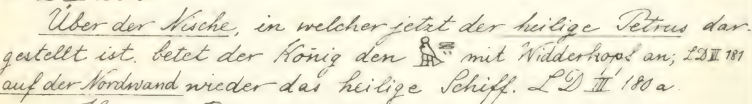 Über der Nische, in welcher jetzt der heilige Petrus dar-
gestellt ist, betet der König den mit Widderkopf an; LD III 181
auf der Nordwand wieder das heilige Schiff. LD III 180 a